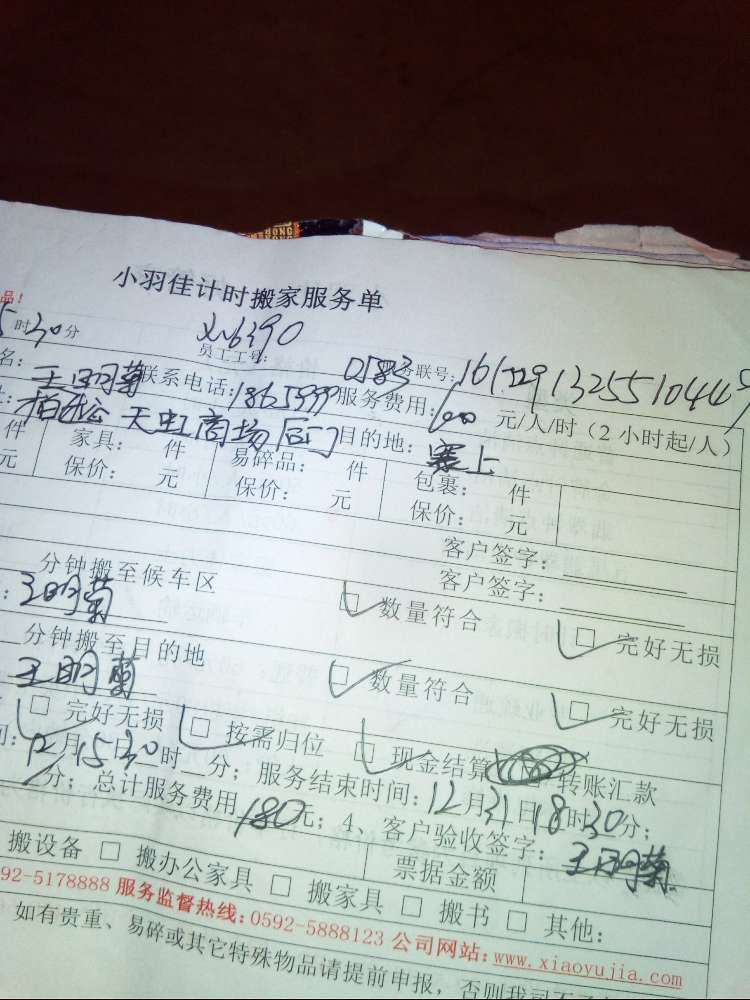 小羽佳计时搬家服务单
品!
5时30分 员工工号: XY6390 0583 务联号: 161229132551044
名: 王明菊 联系电话: 1865999 服务费用: 60 元/人/时(2小时起/人)
天虹商场后门 目的地: 寨上
件 家具: 件 易碎品: 件 包裹: 件
元 保价: 元 保价: 元 保价: 元
客户签字:
分钟搬至候车区 客户签字:
王明菊 ☑ 数量符合 ☑ 完好无损
分钟搬至目的地
王明菊 ☑ 数量符合 ☑ 完好无损
☑ 完好无损 ☑ 按需归位 ☑ 现金结算 转账汇款
间: 12月 15 30时 分; 服务结束时间: 12月31日18时30分;
分; 总计服务费用 180元; 4、客户验收签字: 王明菊
票据金额
搬设备 □ 搬办公家具 □ 搬家具 □ 搬书 □ 其他:
92-5178888 服务监督热线: 0592-5888123 公司网站: www.xiaoyujia.com
如有贵重、易碎或其它特殊物品请提前申报, 否则我司不